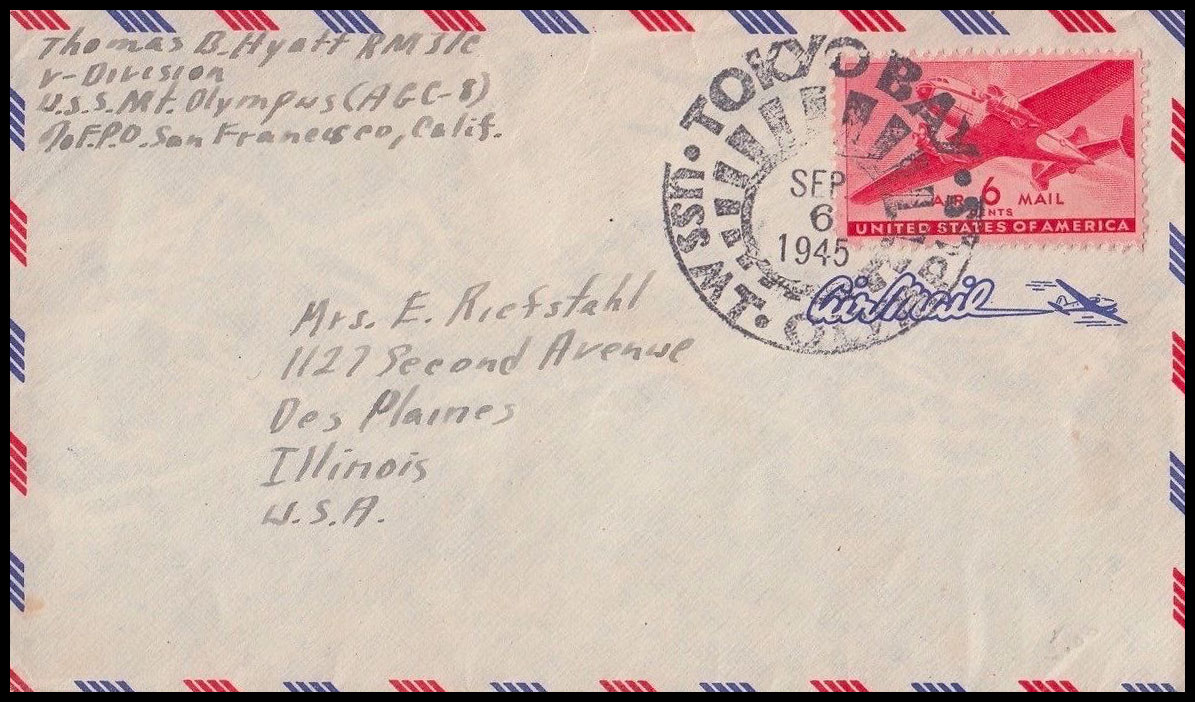 Thomas B. Hyatt RM3/c
V-Division
U.S.S. Mt. Olympus (AGC-8)
℅ F.P.O. San Francisco, Calif.
TOKYO BAY
USS MT. OLYMPUS
SEP
6
1945
AIR 6 MAIL
CENTS
UNITED STATES OF AMERICA
Air Mail
Mrs. E. Riefstahl
1127 Second Avenue
Des Plaines
Illinois
U.S.A.